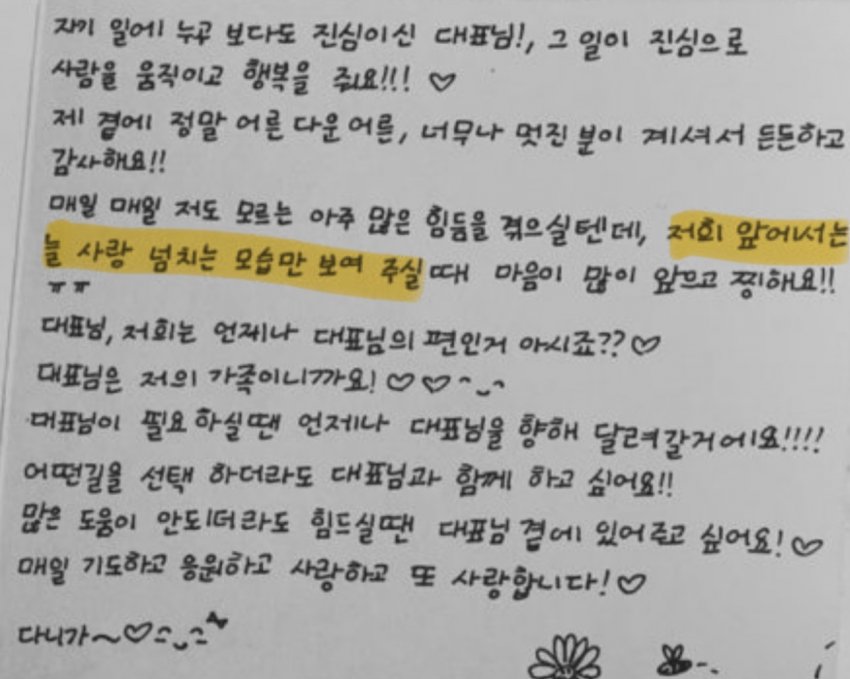 자기 일에 누구 보다도 진심이신 대표님!, 그 일이 진심으로
사람을 움직이고 행복을 줘요!!! ♡
제 곁에 정말 어른 다운 어른, 너무나 멋진 분이 계셔서 든든하고
감사해요!!
매일 매일 저도 모르는 아주 많은 힘듦을 겪으실텐데, 저희 앞에서는
늘 사랑 넘치는 모습만 보여 주실 때 마음이 많이 앞으고 찡해요!!
ㅠㅠ
대표님, 저희는 언제나 대표님의 편인거 아시죠??♡
대표님은 저의 가족이니까요! ♡♡ ^‿^
대표님이 필요하실땐 언제나 대표님을 향해 달려갈거에요!!!!
어떤길을 선택 하더라도 대표님과 함께 하고 싶어요!!
많은 도움이 안되더라도 힘드실땐 대표님 곁에 있어주고 싶어요! ♡
매일 기도하고 응원하고 사랑하고 또 사랑합니다! ♡
다니가~♡